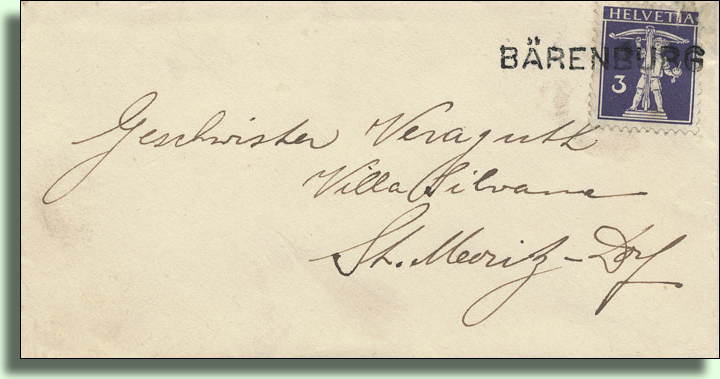 HELVETIA
BÄRENBURG
3
Geschwister Veraguth
Villa Silvana
St. Moritz-Dorf